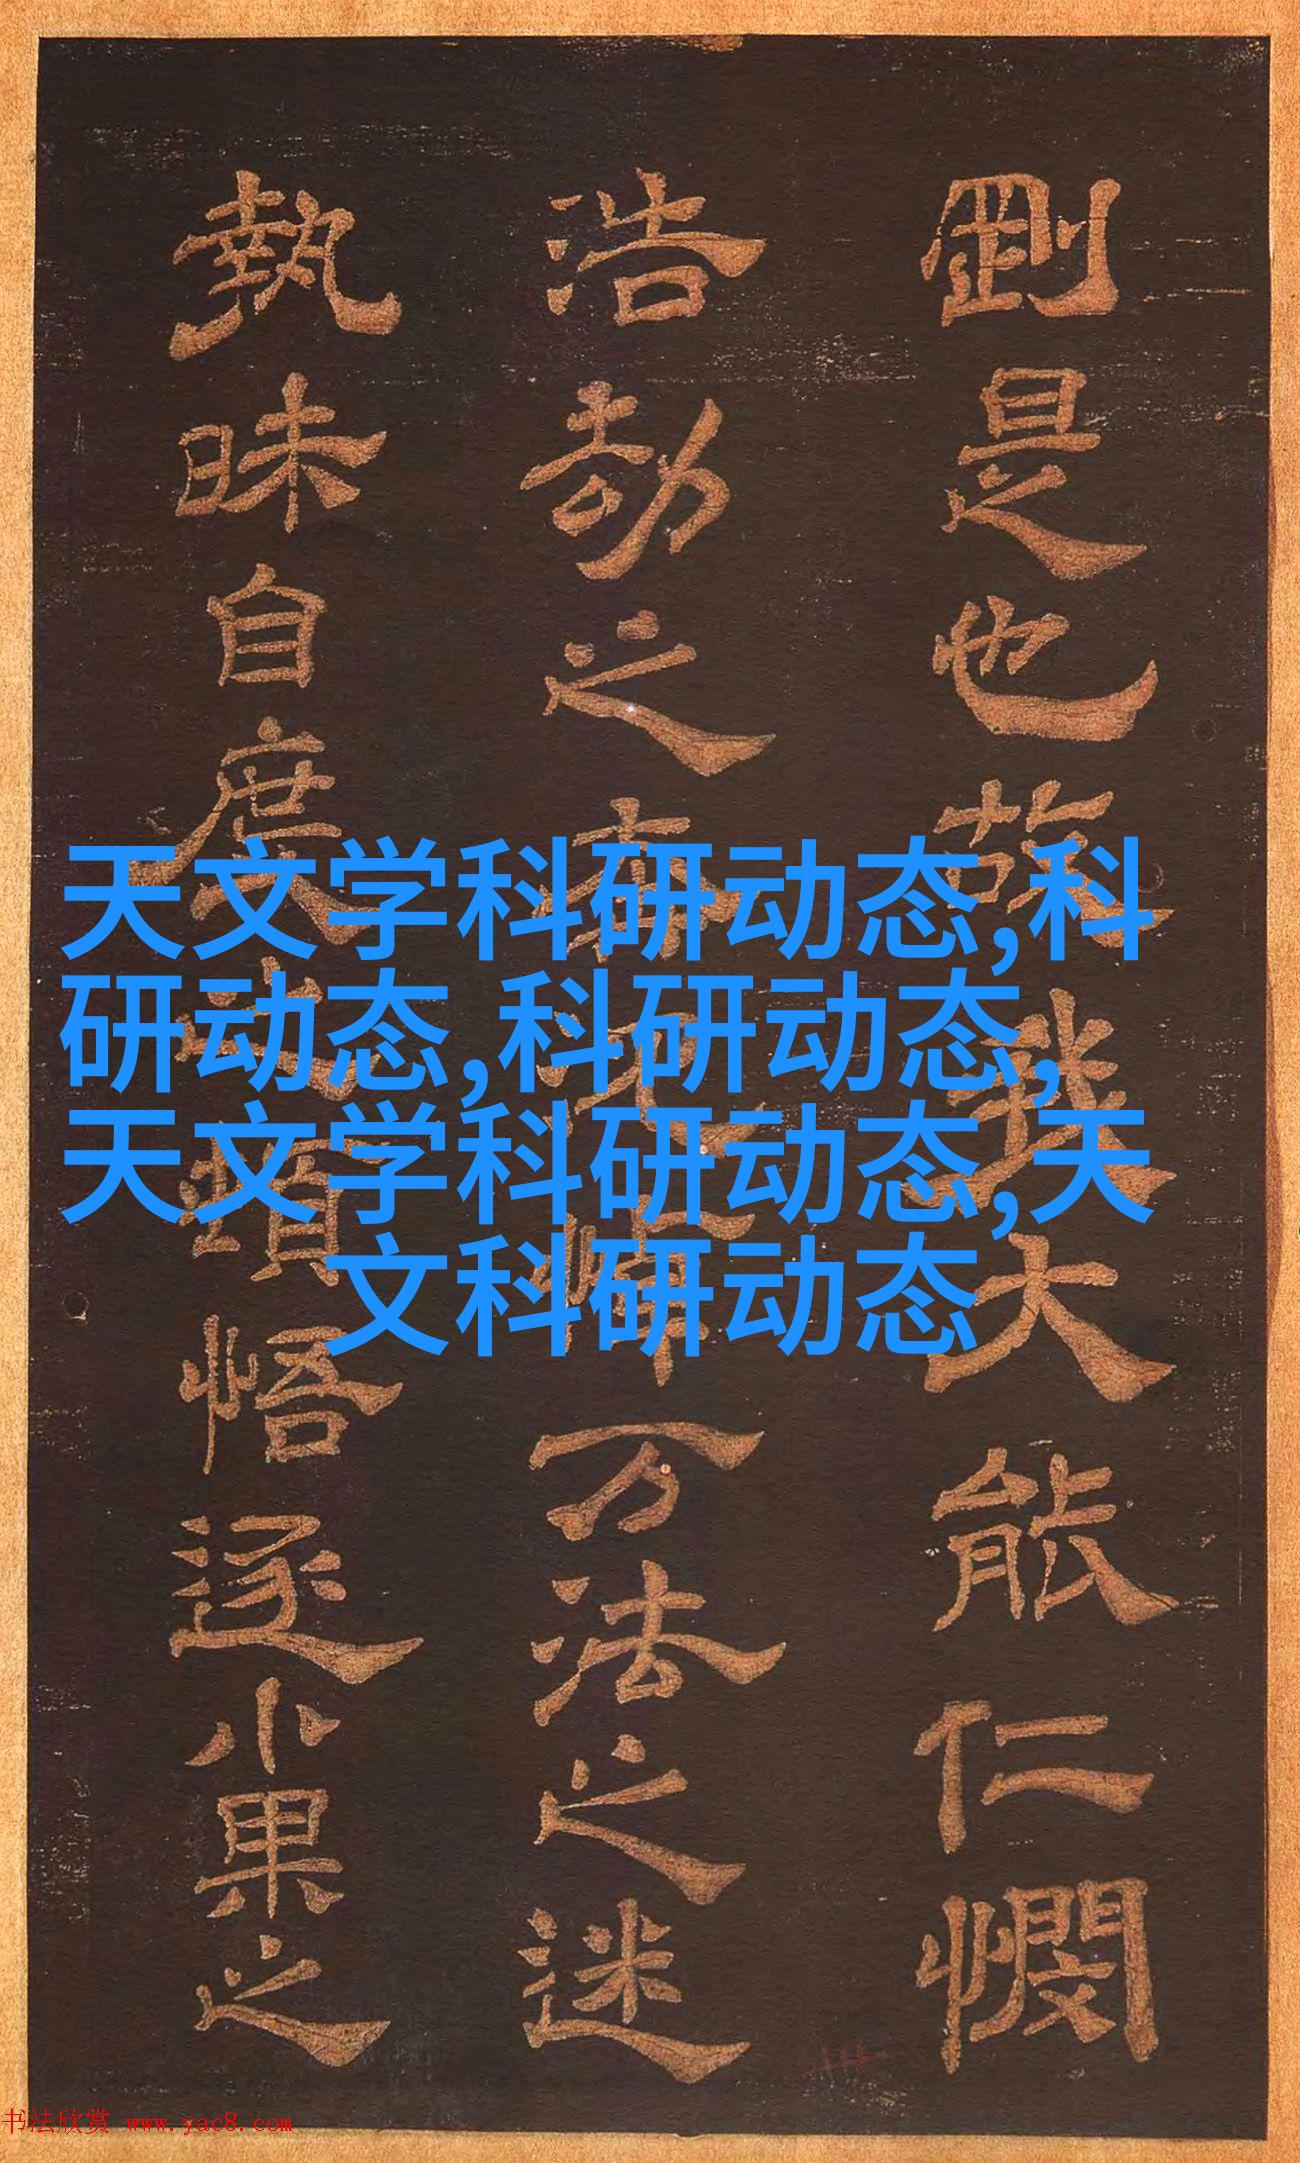 剛是也故我大能仁憫
浩劫之
万法之迷
執昧自度之頓悟逐小果之
天文学科研动态,科
研动态,科研动态,
天文学科研动态,天
文科研动态
书法欣赏 www.yac8.com